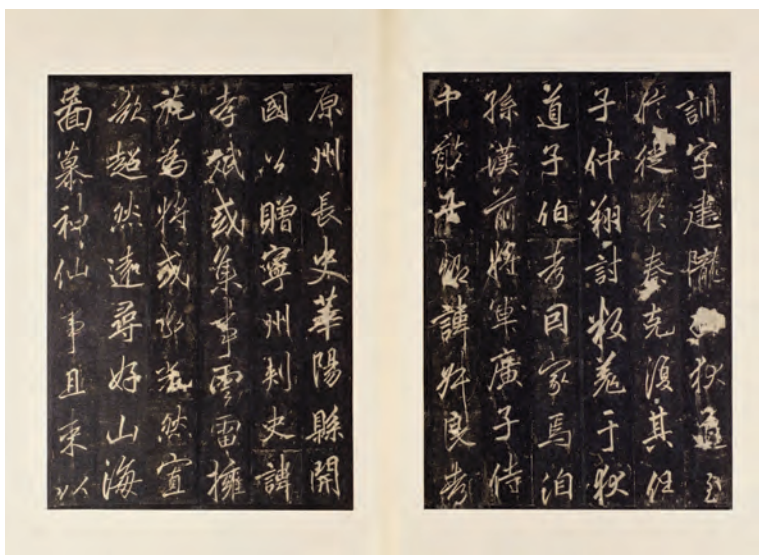 訓字建隴狄道至
於從於秦克復其任
子仲翔討叛羌于狄
道子伯考因家焉洎
孫漢前將軍廣子侍
中敢諱良
原州長史華陽縣開
國公贈寧州刺史諱
孝斌或集事雲雷擁
旄為將或然宣
欲超然遠尋好山海
啚慕神仙事且束以